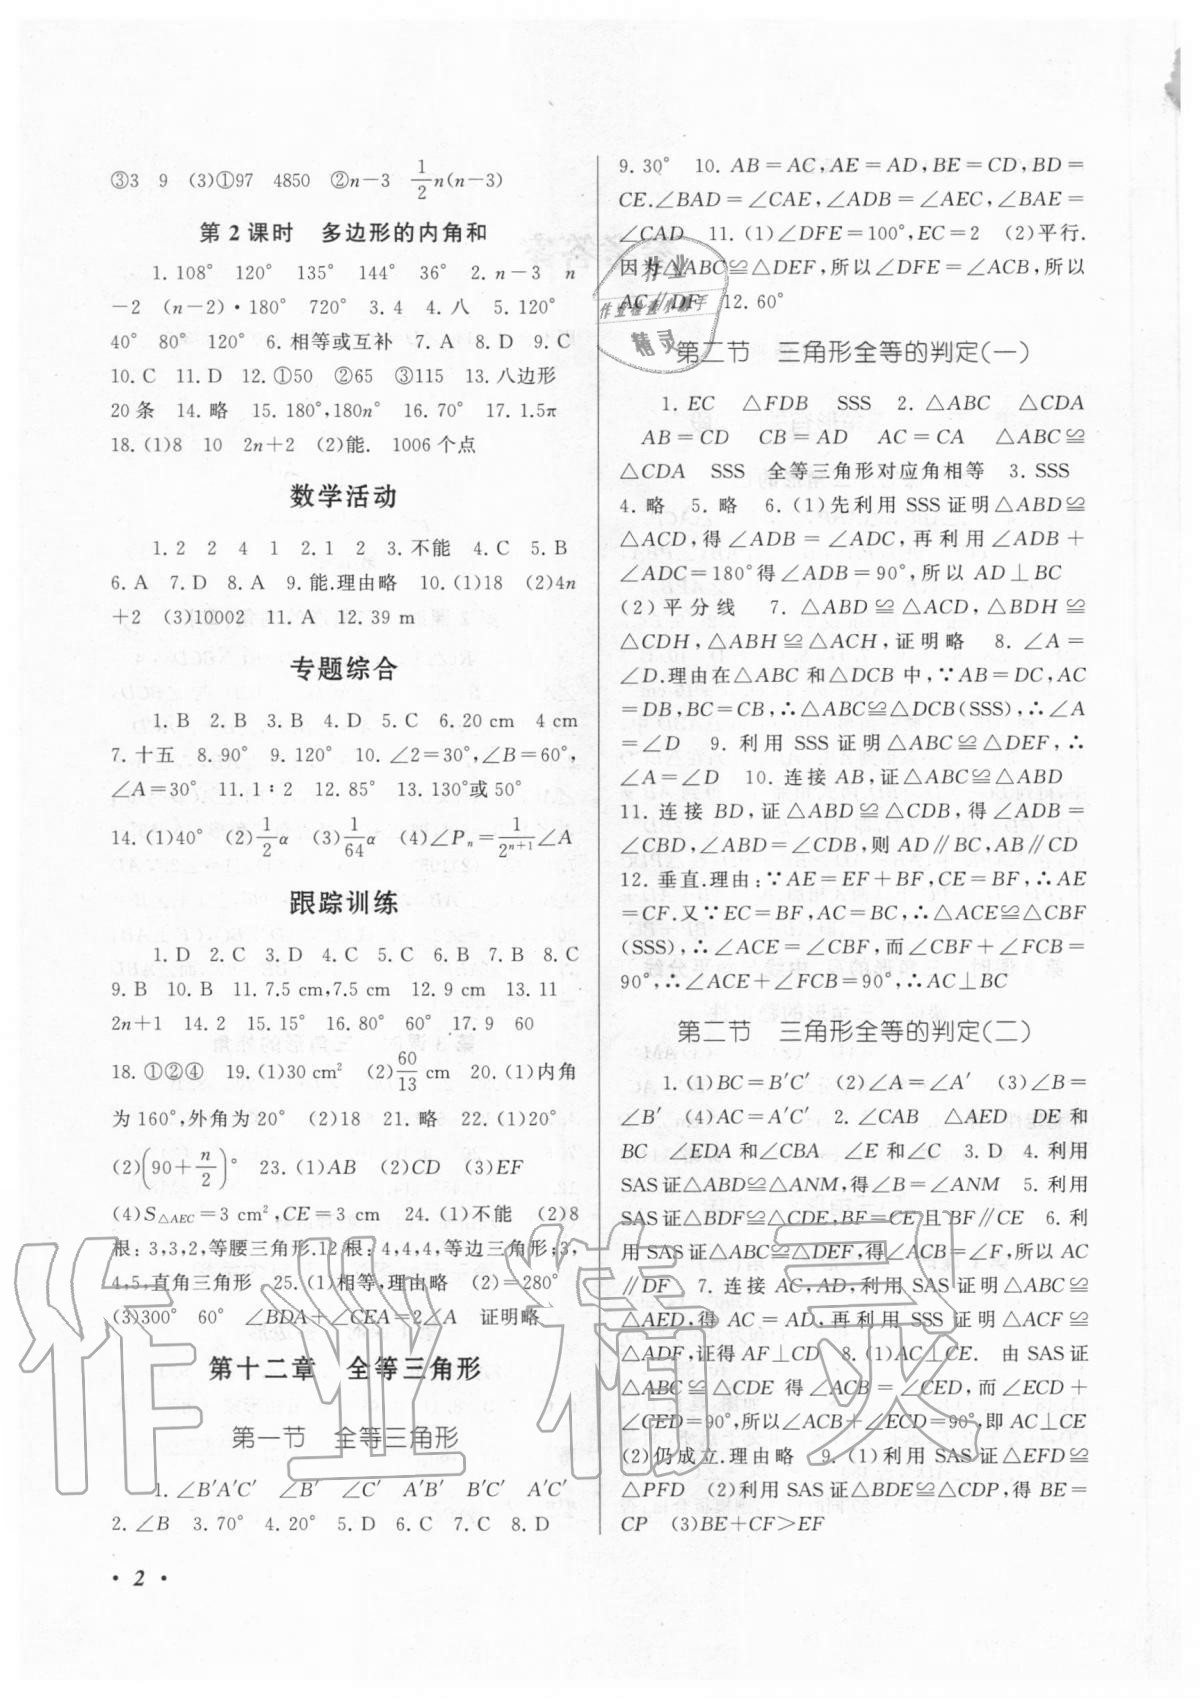 ③3　9　(3)①97　4850　②n－3　1/2 n(n－3)
第2课时　多边形的内角和
1. 108°　120°　135°　144°　36°　2. n－3　n
－2　(n－2)·180°　720°　3. 4　4. 八　5. 120°
40°　80°　120°　6. 相等或互补　7. A　8. D　9. C
10. C　11. D　12. ①50　②65　③115　13. 八边形
20条　14. 略　15. 180°,180n°　16. 70°　17. 1.5π
18. (1)8　10　2n＋2　(2)能.　1006个点
数学活动
1. 2　2　4　1　2. 1　2　3. 不能　4. C　5. B
6. A　7. D　8. A　9. 能.理由略　10. (1)18　(2)4n
＋2　(3)10002　11. A　12. 39 m
专题综合
1. B　2. B　3. B　4. D　5. C　6. 20 cm　4 cm
7. 十五　8. 90°　9. 120°　10. ∠2＝30°,∠B＝60°,
∠A＝30°　11. 1∶2　12. 85°　13. 130°或50°
14. (1)40°　(2)1/2 α　(3)1/64 α　(4)∠Pₙ＝1/2ⁿ⁺¹∠A
跟踪训练
1. D　2. C　3. D　4. C　5. C　6. B　7. B　8. C
9. B　10. B　11. 7.5 cm,7.5 cm　12. 9 cm　13. 11
2n＋1　14. 2　15. 120°　16. 80°　60°　17. 9　60
18. ①②④　19. (1)30 cm²　(2)60/13 cm　20. (1)内角
为160°,外角为20°　(2)18　21. 略　22. (1)20°
(2)(90＋n/2)°　23. (1)AB　(2)CD　(3)EF
(4)S△AEC＝3 cm²,CE＝3 cm　24. (1)不能　(2)8
根:3,3,2,等腰三角形.12根:4,4,4,等边三角形;3,
4,5,直角三角形　25. (1)相等,理由略　(2)＝280°
(3)300°　60°　∠BDA＋∠CEA＝2∠A　证明略
第十二章　全等三角形
第一节　全等三角形
1. ∠B′A′C′　∠B′　∠C′　A′B′　B′C′　A′C′
2. ∠B　3. 70°　4. 20°　5. D　6. C　7. C　8. D
· 2 ·
9. 30°　10. AB＝AC,AE＝AD,BE＝CD,BD＝
CE.∠BAD＝∠CAE,∠ADB＝∠AEC,∠BAE＝
∠CAD　11. (1)∠DFE＝100°,EC＝2　(2)平行.
因为△ABC≌△DEF,所以∠DFE＝∠ACB,所以
AC∥DF　12. 60°
第二节　三角形全等的判定(一)
1. EC　△FDB　SSS　2. △ABC　△CDA
AB＝CD　CB＝AD　AC＝CA　△ABC≌
△CDA　SSS　全等三角形对应角相等　3. SSS
4. 略　5. 略　6. (1)先利用SSS证明△ABD≌
△ACD,得∠ADB＝∠ADC,再利用∠ADB＋
∠ADC＝180°得∠ADB＝90°,所以AD⊥BC
(2)平分线　7. △ABD≌△ACD,△BDH≌
△CDH,△ABH≌△ACH,证明略　8. ∠A＝
∠D.理由在△ABC和△DCB中,∵AB＝DC,AC
＝DB,BC＝CB,∴△ABC≌△DCB(SSS),∴∠A
＝∠D　9. 利用SSS证明△ABC≌△DEF,∴
∠A＝∠D　10. 连接AB,证△ABC≌△ABD
11. 连接BD,证△ABD≌△CDB,得∠ADB＝
∠CBD,∠ABD＝∠CDB,则AD∥BC,AB∥CD
12. 垂直.理由:∵AE＝EF＋BF,CE＝BF,∴AE
＝CF.又∵EC＝BF,AC＝BC,∴△ACE≌△CBF
(SSS),∴∠ACE＝∠CBF,而∠CBF＋∠FCB＝
90°,∴∠ACE＋∠FCB＝90°,∴AC⊥BC
第二节　三角形全等的判定(二)
1. (1)BC＝B′C′　(2)∠A＝∠A′　(3)∠B＝
∠B′　(4)AC＝A′C′　2. ∠CAB　△AED　DE和
BC　∠EDA和∠CBA　∠E和∠C　3. D　4. 利用
SAS证△ABD≌△ANM,得∠B＝∠ANM　5. 利用
SAS证△BDF≌△CDE,BF＝CE且BF∥CE　6. 利
用SAS证△ABC≌△DEF,得∠ACB＝∠F,所以AC
∥DF　7. 连接AC,AD,利用SAS证明△ABC≌
△AED,得AC＝AD,再利用SAS证明△ACF≌
△ADF,证得AF⊥CD　8. (1)AC⊥CE.　由SAS证
△ABC≌△CDE得∠ACB＝∠CED,而∠ECD＋
∠CED＝90°,所以∠ACB＋∠ECD＝90°,即AC⊥CE
(2)仍成立.理由略　9. (1)利用SAS证△EFD≌
△PFD　(2)利用SAS证△BDE≌△CDP,得BE＝
CP　(3)BE＋CF＞EF
作业
作业检查小助手
精灵
作业精灵